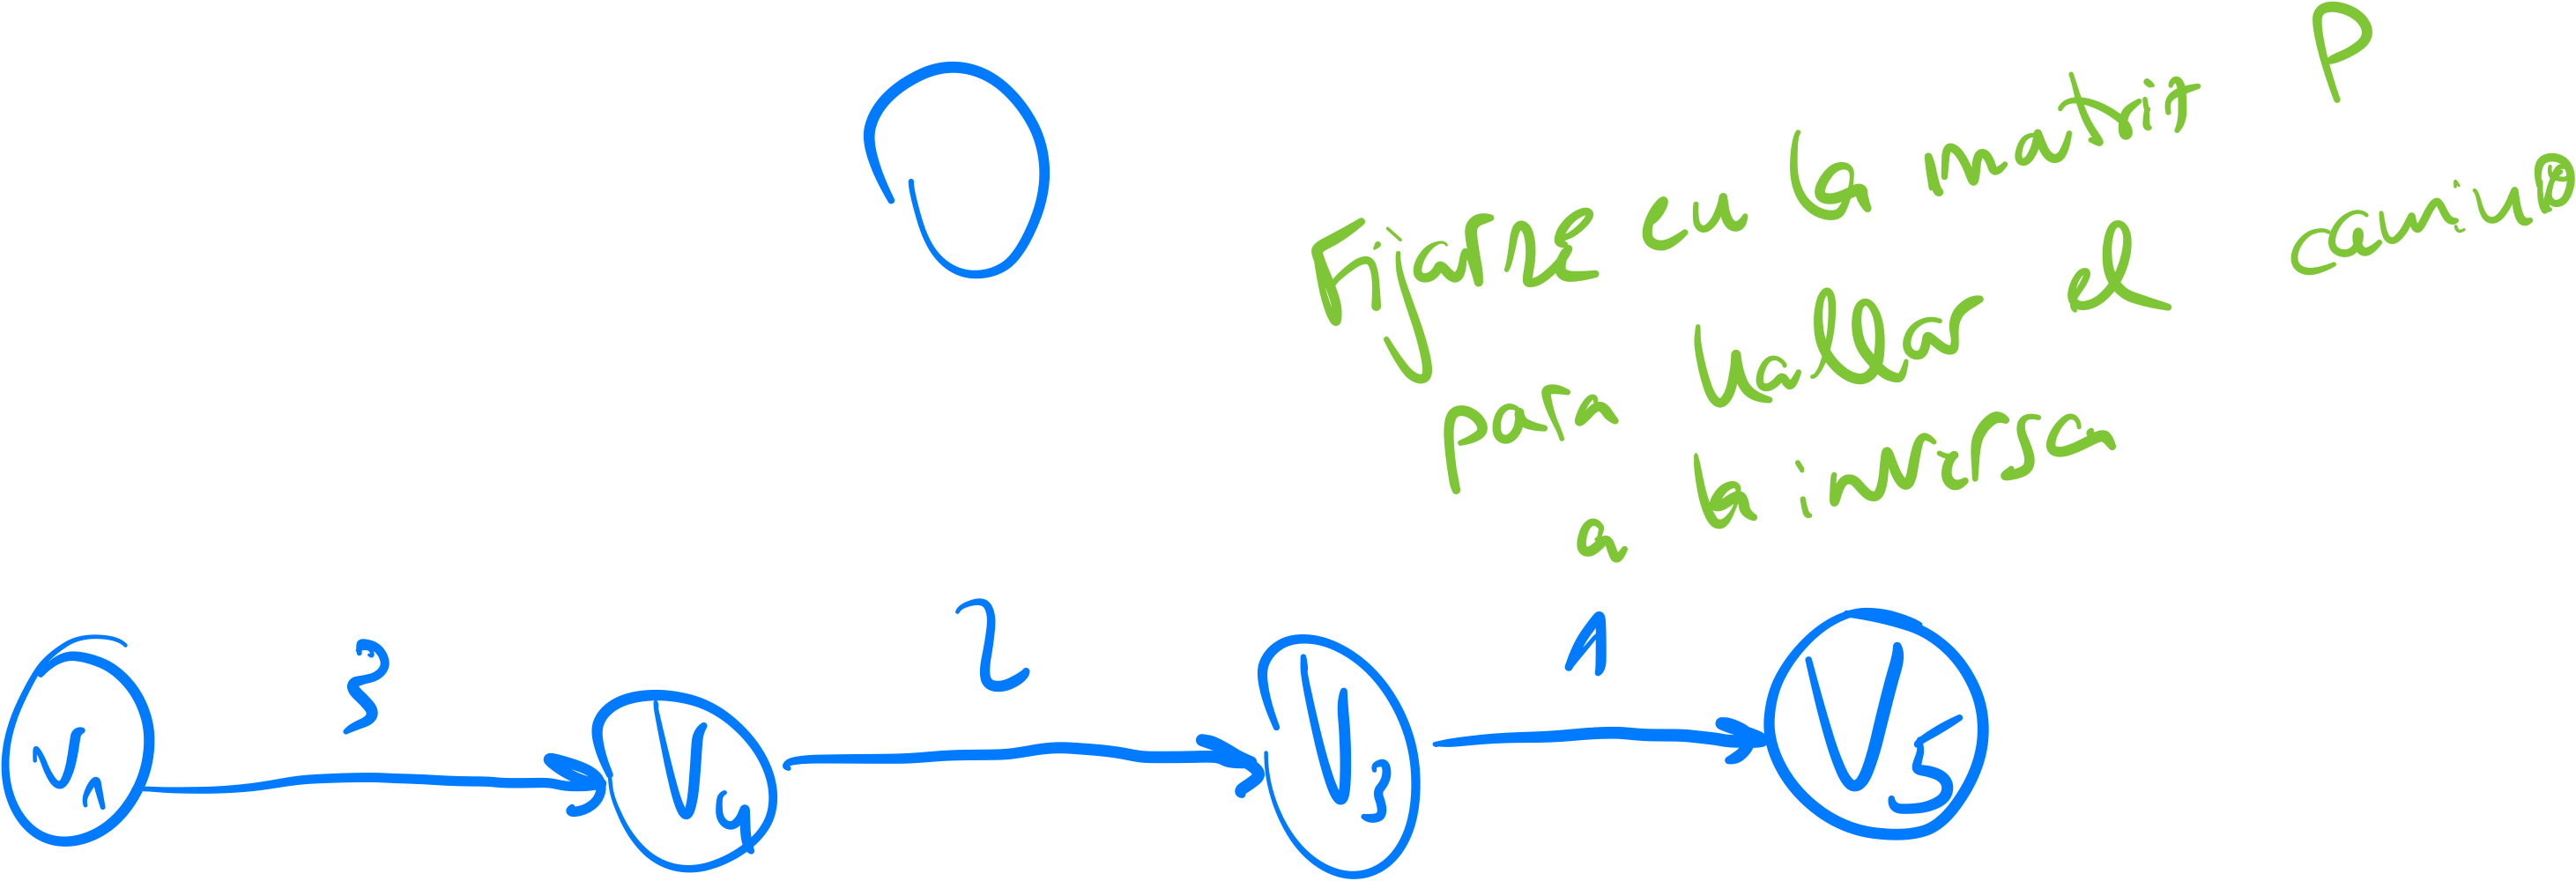 Fijarse en la matriz P
para hallar el camino
a la inversa
3 2 1
V1 V4 V3 V5